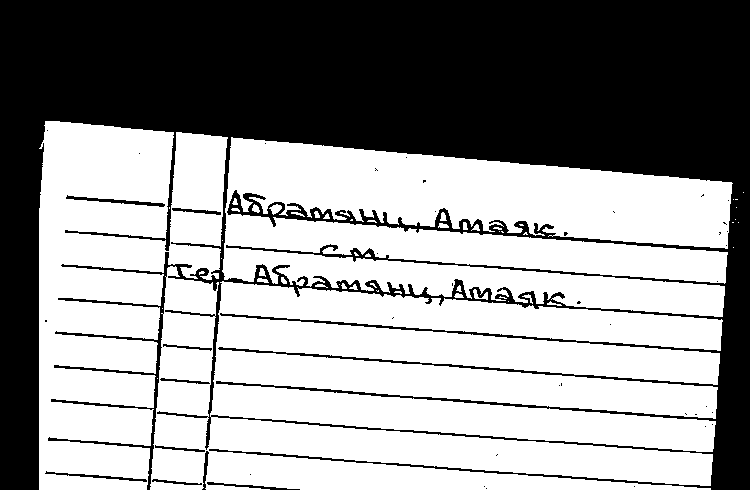 Абрамянц, Амаяк.
см.
Тер-Абрамянц, Амаяк.